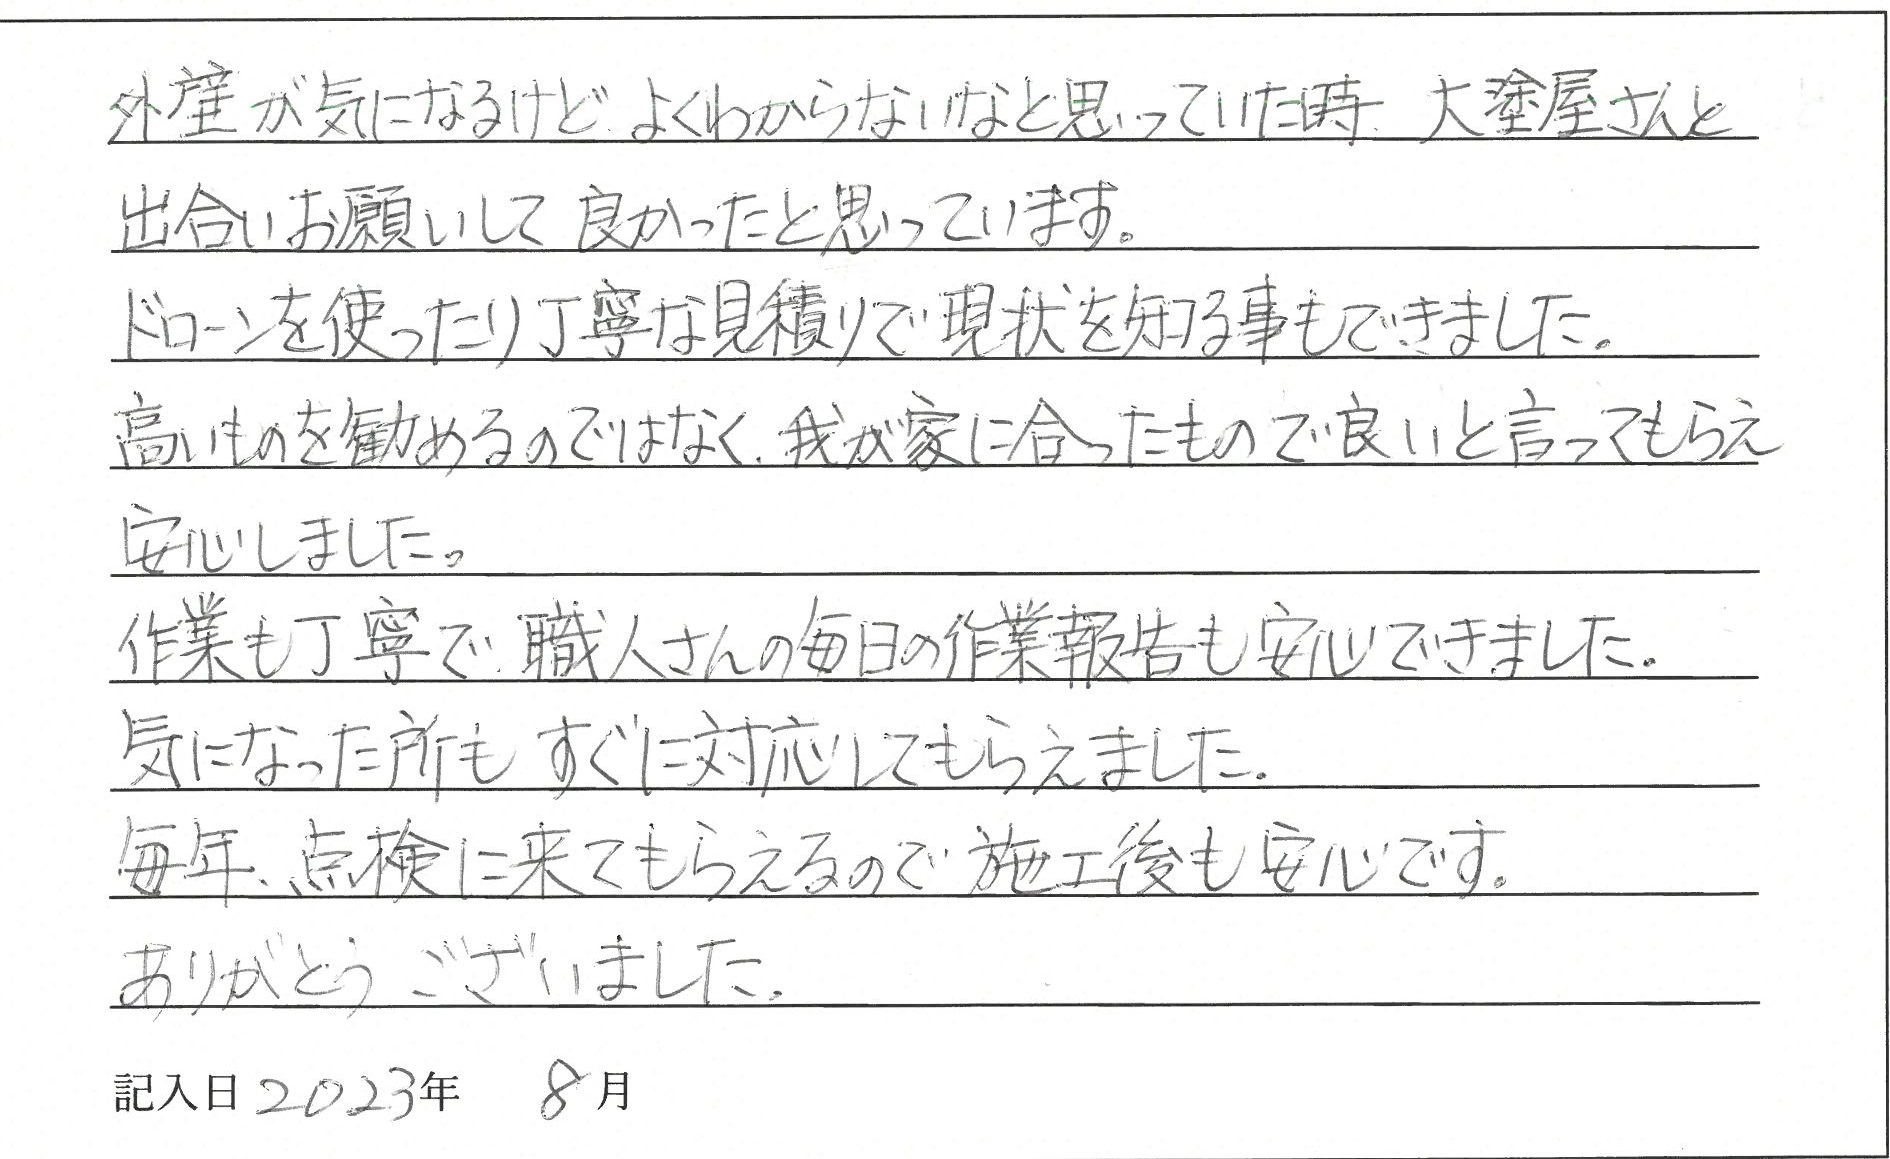 外壁が気になるけど、よくわからないなと思っていた時、大塗屋さんと
出合いお願いして良かったと思っています。
ドローンを使ったり丁寧な見積りで現状を知る事もできました。
高いものを勧めるのではなく、我が家に合ったもので良いと言ってもらえ
安心しました。
作業も丁寧で、職人さんの毎日の作業報告も安心できました。
気になった所も すぐに対応してもらえました。
毎年、点検に来てもらえるので施工後も安心です。
ありがとう ございました。
記入日 2023年 8月